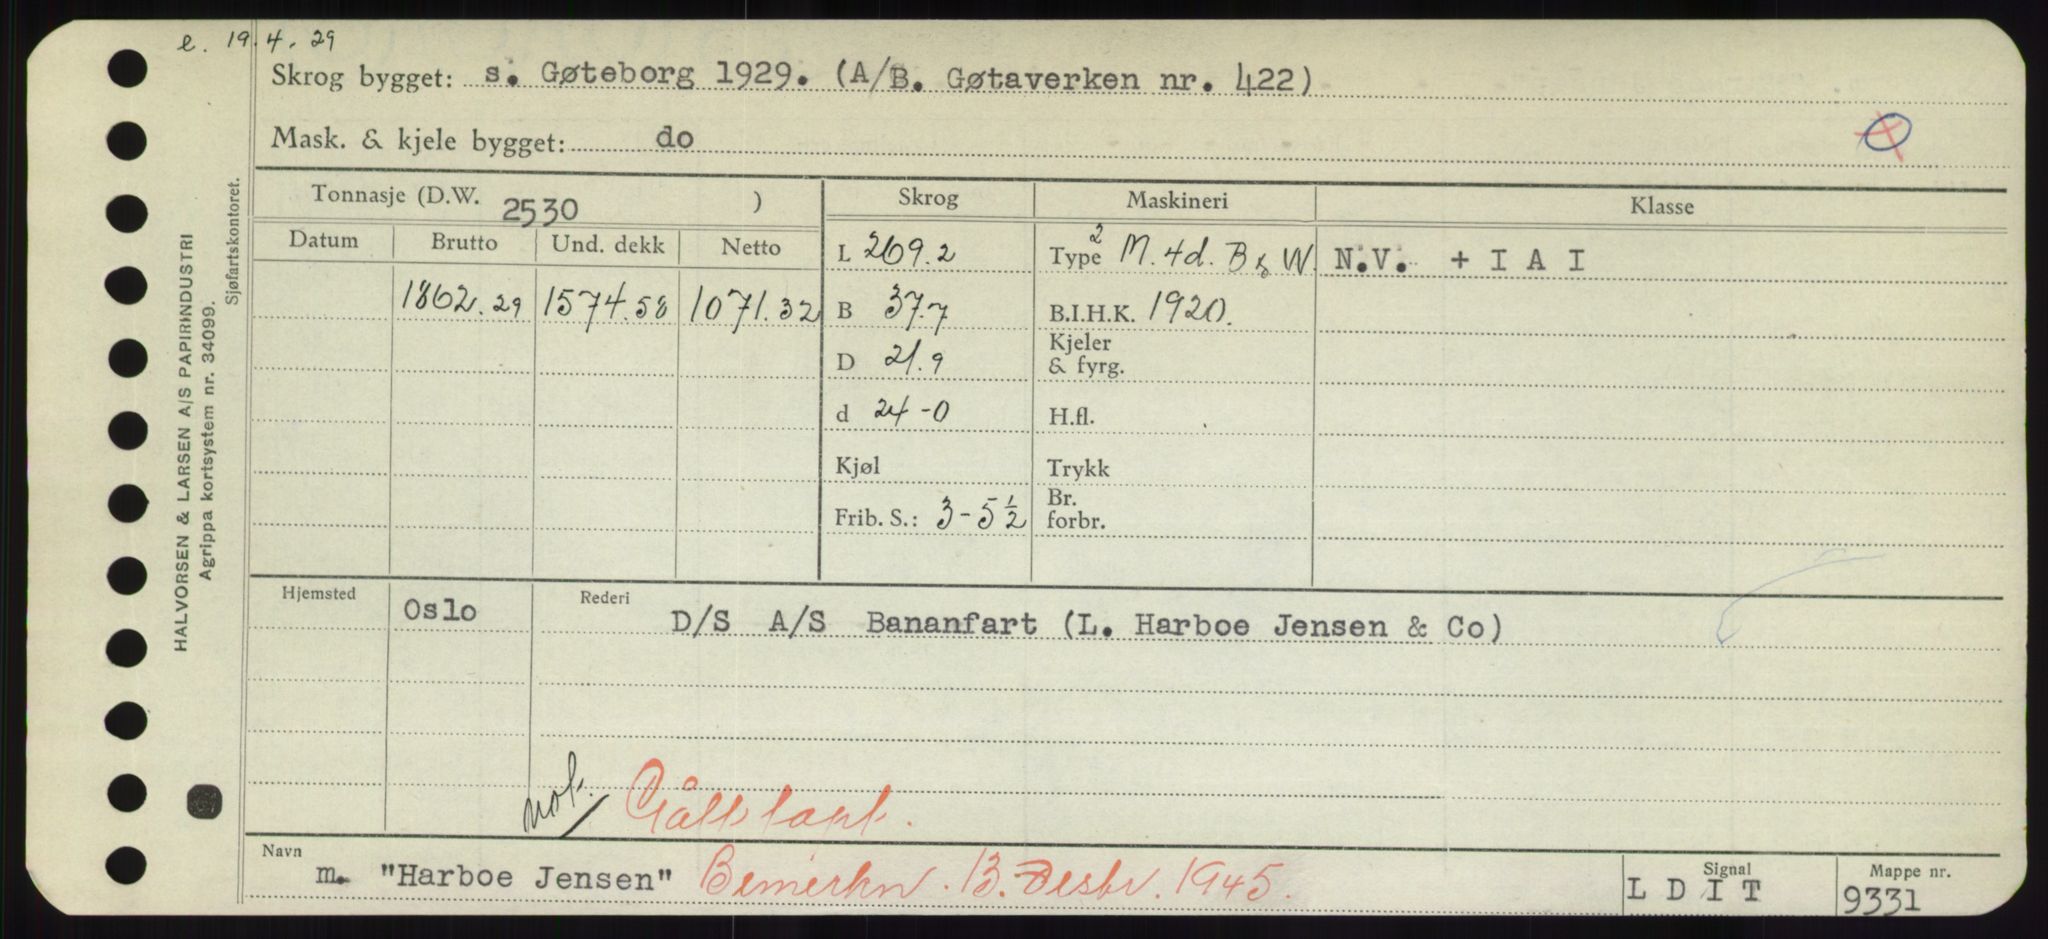 e. 19.4.29
Skrog bygget: s. Gøteborg 1929. (A/B. Gøtaverken nr. 422)
Mask. & kjele bygget: do
Tonnasje (D.W. 2530 )
Skrog
Maskineri
Klasse
Datum
Brutto
Und. dekk
Netto
1862.29
1574.58
1071.32
L 269.2
B 37.7
D 21.9
d 24-0
Kjøl
Frib. S.: 3-5½
Type 2 M. 4d. B & W.
B.I.H.K. 1920.
Kjeler
& fyrg.
H.fl.
Trykk
Br.
forbr.
N.V. + I A I
Hjemsted
Oslo
Rederi
D/S A/S Bananfart (L. Harboe Jensen & Co)
not.
Gått tapt.
Navn
m. "Harboe Jensen" Bemerkn. 13. Desbr. 1945.
Signal
L D I T
Mappe nr.
9331
HALVORSEN & LARSEN A/S PAPIRINDUSTRI
Agrippa kortsystem nr. 34099.
Sjøfartskontoret.